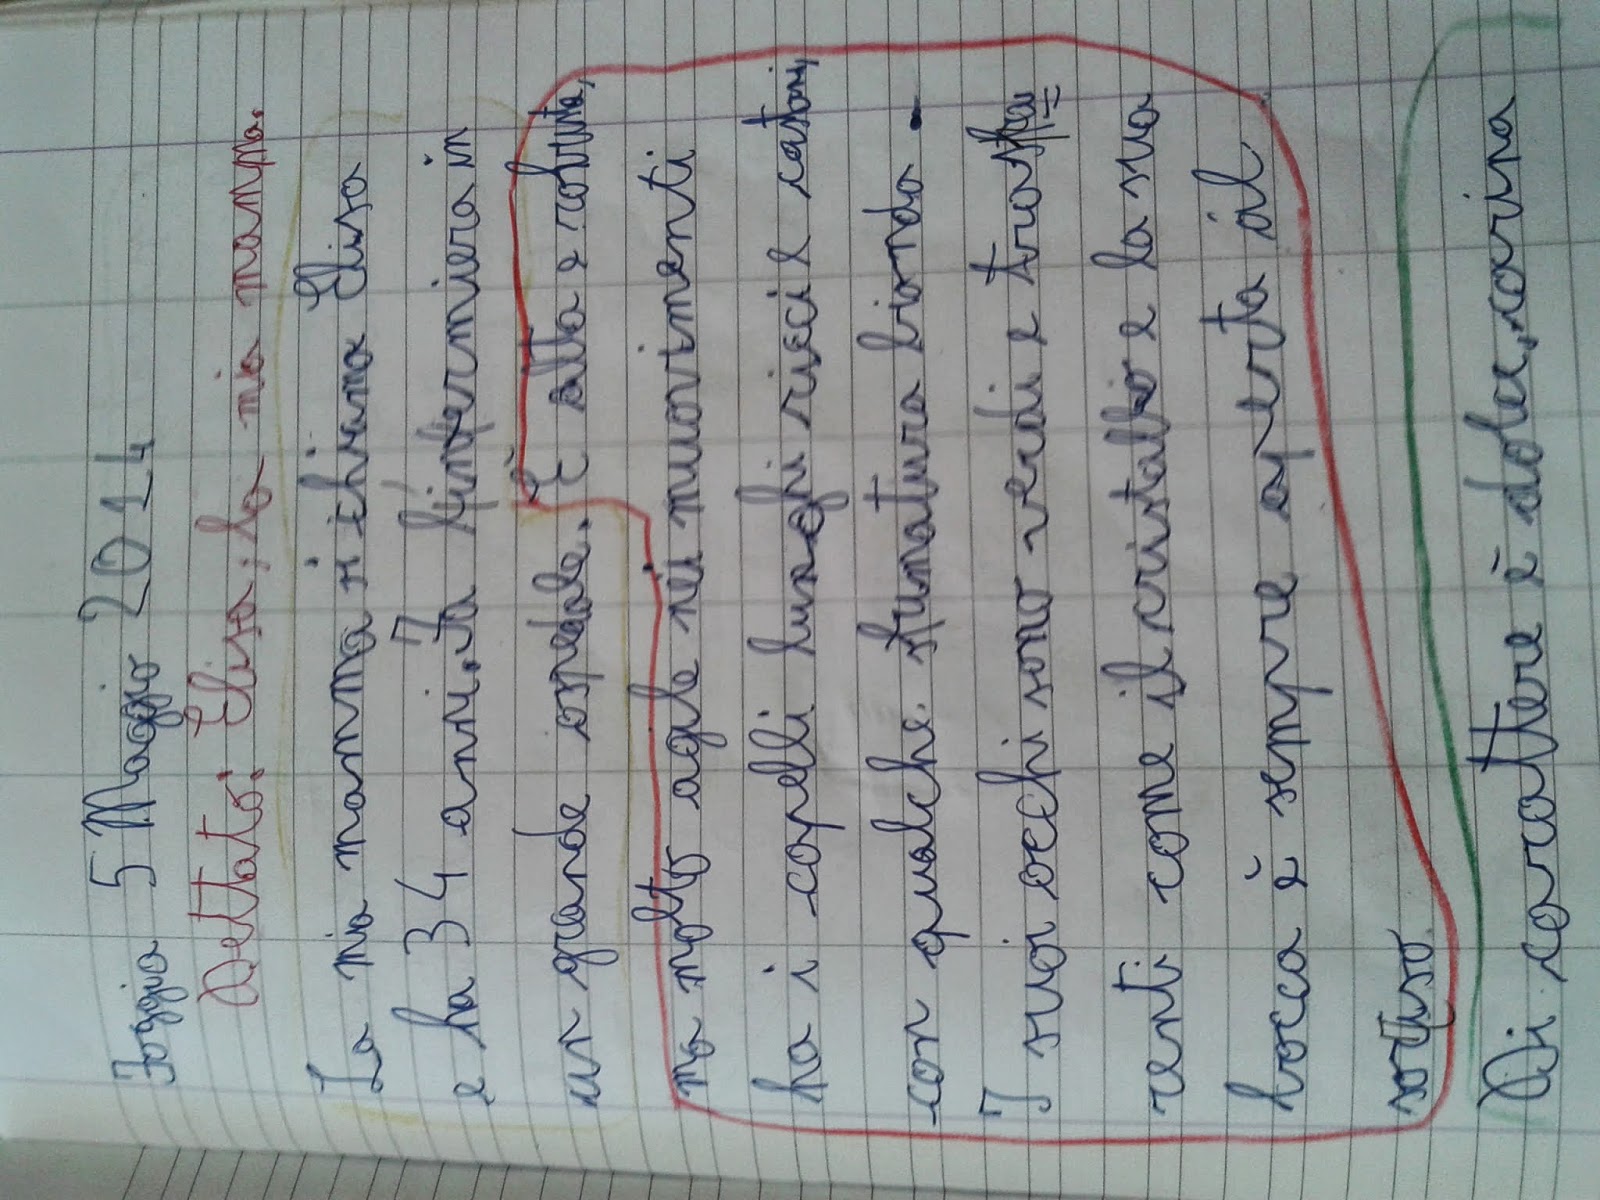 Foggia 5 Maggio 2014
Dettato: Elisa, la mia mamma.
La mia mamma si chiama Elisa
e ha 34 anni. Fa l'infermiera in
un grande ospedale. È alta e robusta,
ma molto agile nei muovimenti
ha i capelli lunghi ricci e castani,
con qualche sfumatura bionda.
I suoi occhi sono verdi e traspa=
renti come il cristallo e la sua
bocca è sempre aperta al
sorriso.
Di carattere è dolce, carina